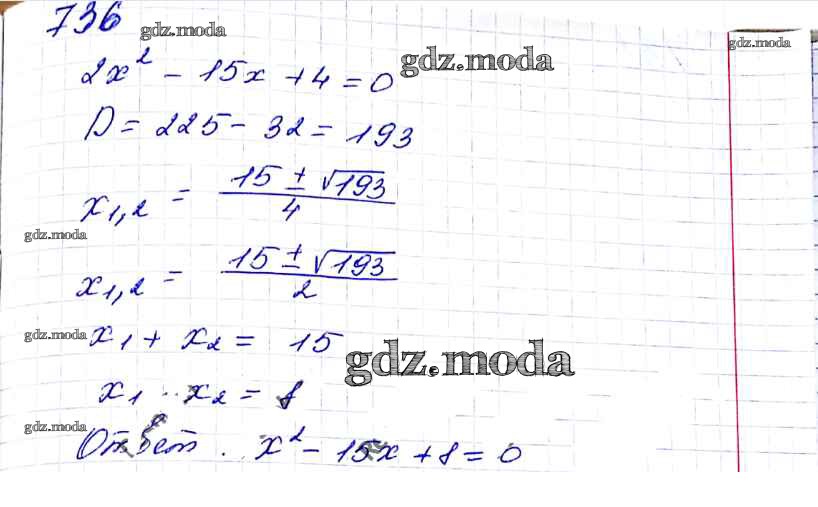 736
gdz.moda
gdz.moda
2x² - 15x + 4 = 0
gdz.moda
D = 225 - 32 = 193
x₁,₂ = (15 ± √193)/4
gdz.moda
x₁,₂ = (15 ± √193)/2
gdz.moda
x₁ + x₂ = 15
gdz.moda
x₁ · x₂ = 8
gdz.moda
Ответ. x² - 15x + 8 = 0